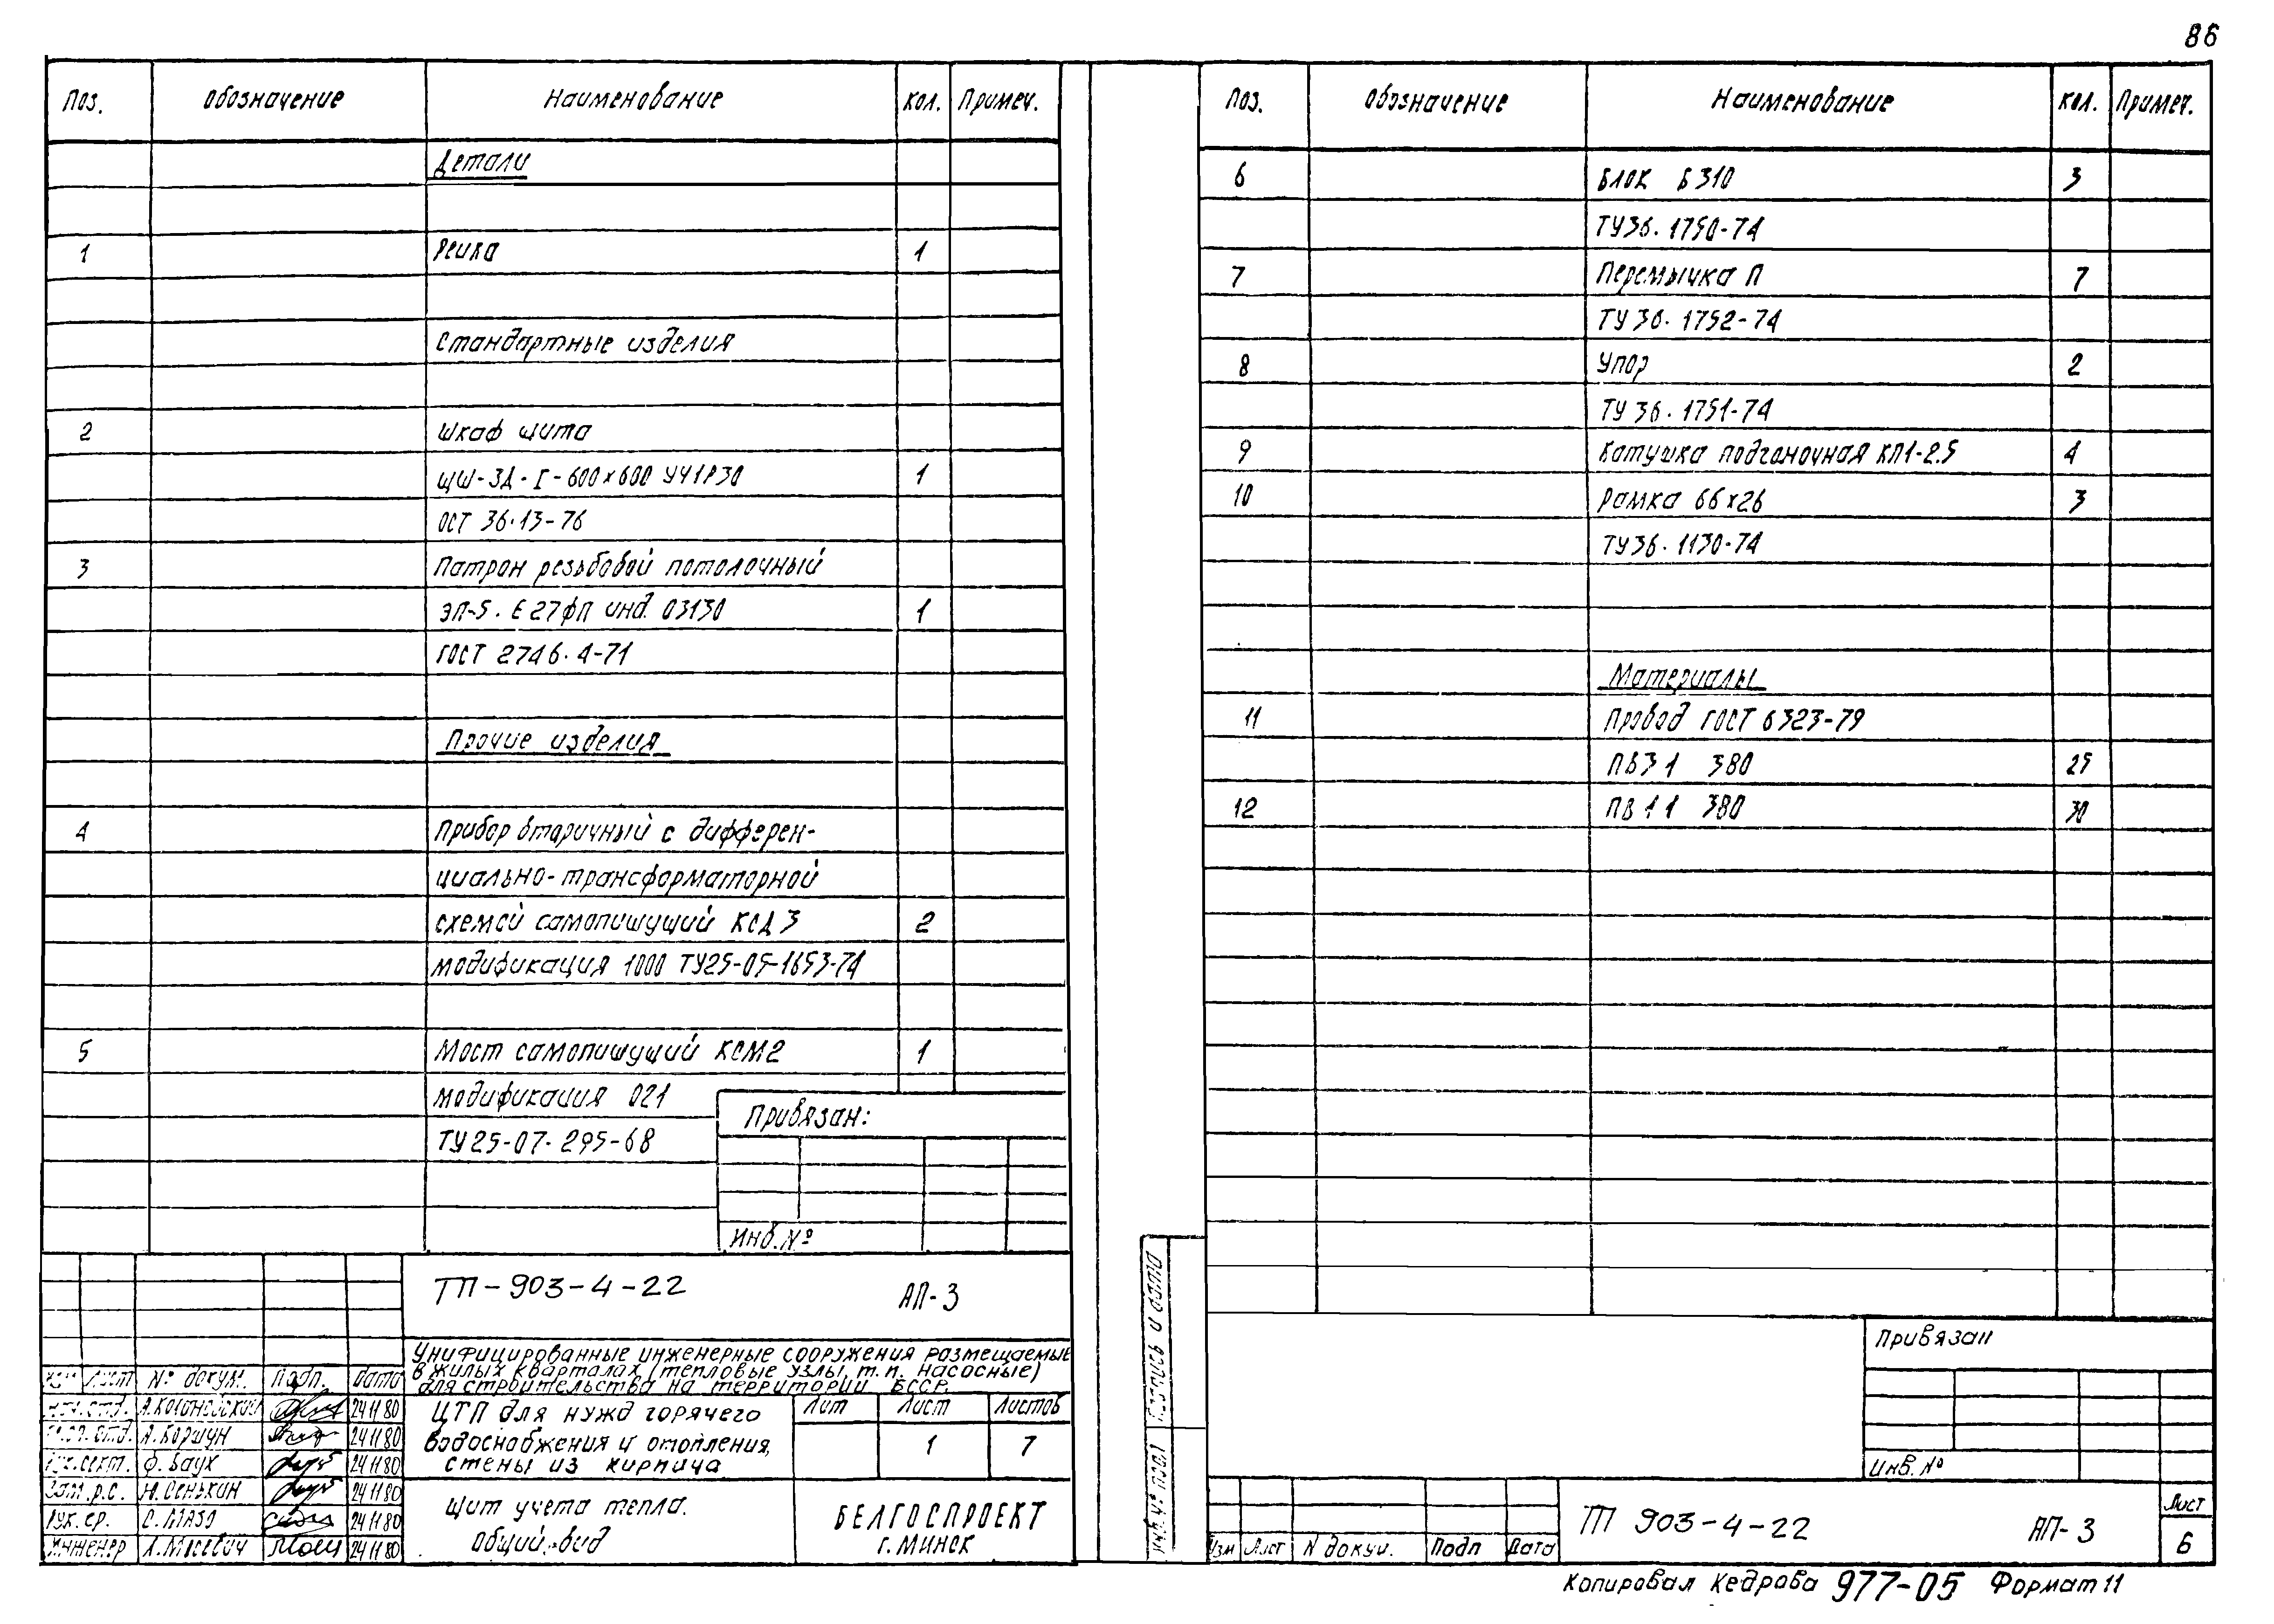 86
Поз. Обозначение Наименование Кол. Примеч.
Детали
1 Рейка 1
Стандартные изделия
2 Шкаф щита
ЩШ-ЗД-I-600х600 УЧ1Р30 1
ОСТ 36.13-76
3 Патрон резьбовой потолочный
ЭП-5. Е27ФП инд. 03130 1
ГОСТ 2746.4-71
Прочие изделия
4 Прибор вторичный с дифферен-
циально-трансформаторной
схемой самопишущий КСД3 2
модификация 1000 ТУ25-05-1653-74
5 Мост самопишущий КСМ2 1
модификация 021
ТУ25-07.295-68
Привязан:
Инв.№
ТП-903-4-22 АП-3
Унифицированные инженерные сооружения размещаемые
в жилых кварталах (тепловые узлы, т.п. насосные)
для строительства на территории БССР.
Изм Лист № докум. Подп. Дата
Нач.отд. 24.11.80
А.Коршун 24.11.80
Рук.сект. Ф.Баук 24.11.80
Зам.р.с. Н.Сенькин 24.11.80
Рук.гр. С.Мазо 24.11.80
Инженер Л.Мисевич 24.11.80
ЦТП для нужд горячего
водоснабжения и отопления,
стены из кирпича
Лит Лист Листов
1 7
Щит учета тепла.
Общий вид
БЕЛГОСПРОЕКТ
г. Минск
Поз. Обозначение Наименование Кол. Примеч.
6 Блок Б310 3
ТУ36.1750-74
7 Перемычка П 7
ТУ36.1752-74
8 Упор 2
ТУ36.1751-74
9 Катушка подгоночная КП1-2.5 4
10 Рамка 66х26 3
ТУ36.1130-74
Материалы
11 Провод ГОСТ 6323-79
ПВ3 1 380 25
12 ПВ1 1 380 30
Привязан
Инв.№
Изм Лист N докум. Подп Дата
ТП 903-4-22 АП-3
Лист
6
Копировал Кедрова 977-05 Формат 11